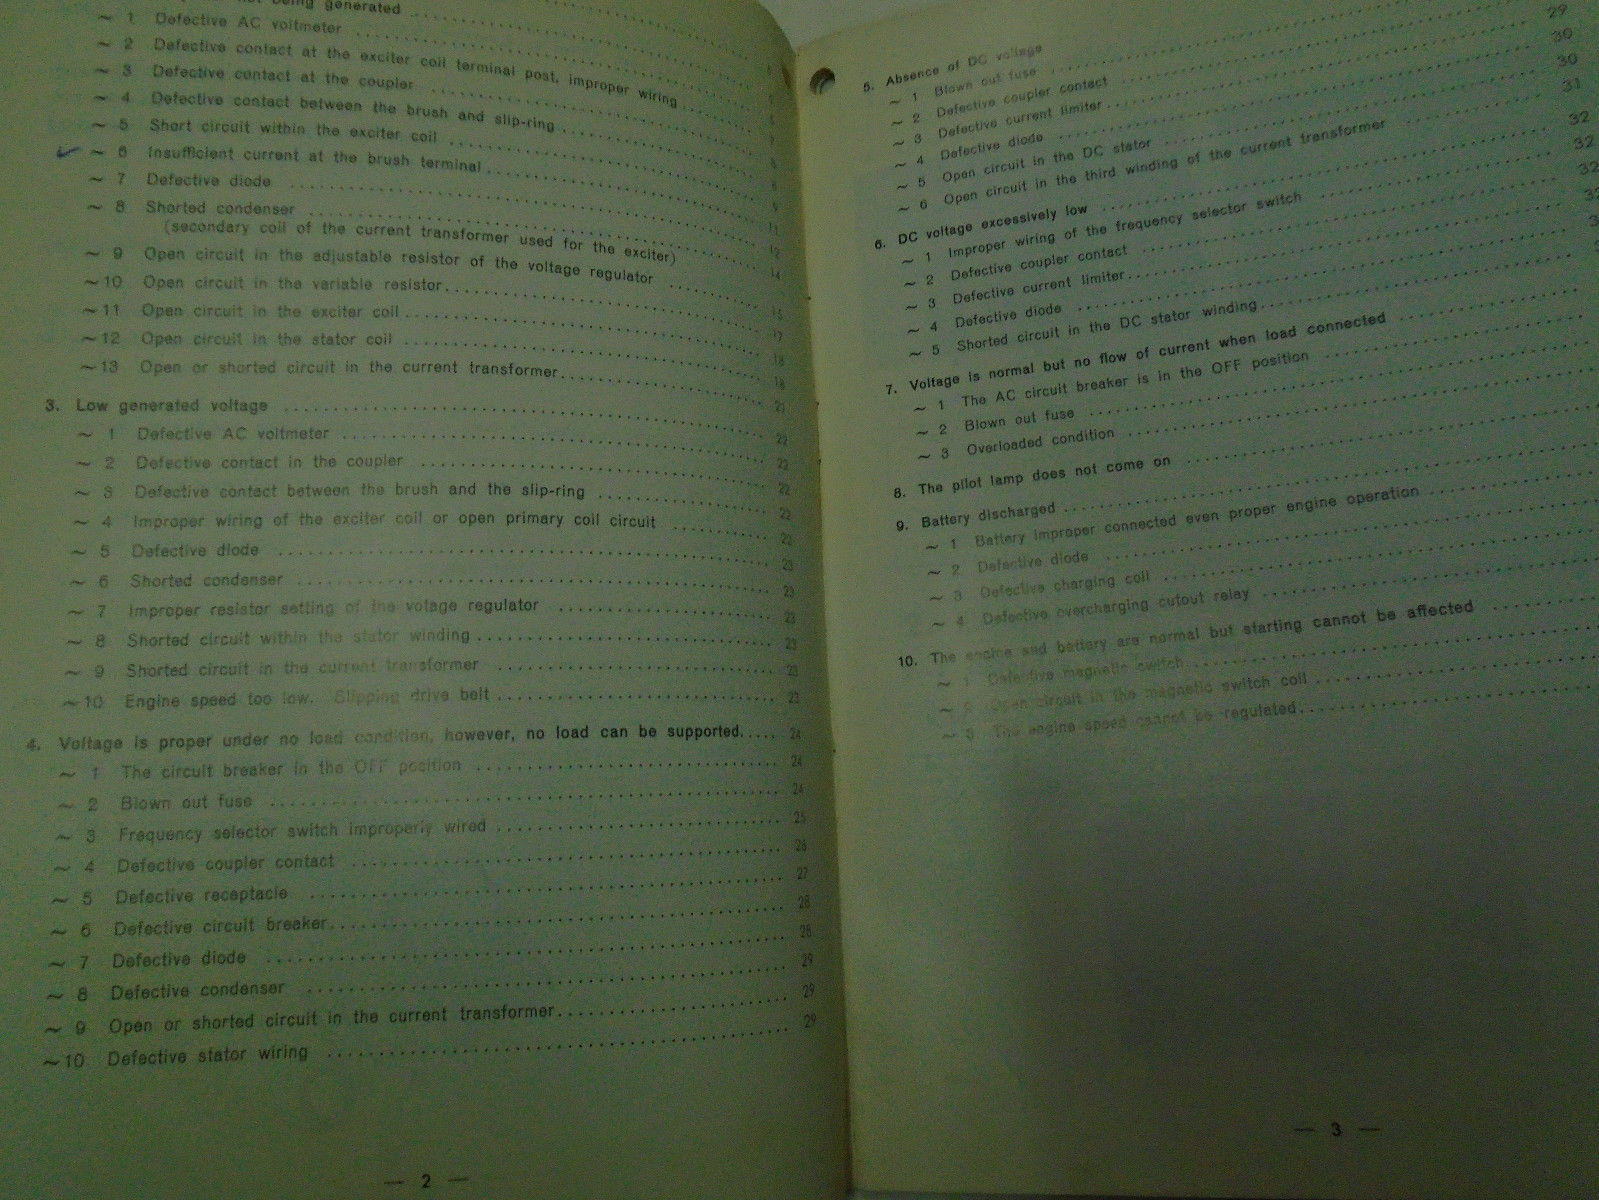 being generated
~ 1 Defective AC voltmeter
~ 2 Defective contact at the exciter coil terminal post, improper wiring
~ 3 Defective contact at the coupler
~ 4 Defective contact between the brush and slip-ring
~ 5 Short circuit within the exciter coil
~ 6 Insufficient current at the brush terminal
~ 7 Defective diode
~ 8 Shorted condenser
(secondary coil of the current transformer used for the exciter)
~ 9 Open circuit in the adjustable resistor of the voltage regulator
~10 Open circuit in the variable resistor
~11 Open circuit in the exciter coil
~12 Open circuit in the stator coil
~13 Open or shorted circuit in the current transformer
3. Low generated voltage
~ 1 Defective AC voltmeter 22
~ 2 Defective contact in the coupler 22
~ 3 Defective contact between the brush and the slip-ring 22
~ 4 Improper wiring of the exciter coil or open primary coil circuit 22
~ 5 Defective diode 23
~ 6 Shorted condenser 23
~ 7 Improper resistor setting of the votage regulator 23
~ 8 Shorted circuit within the stator winding 23
~ 9 Shorted circuit in the current transformer 23
~10 Engine speed too low. Slipping drive belt 23
4. Voltage is proper under no load condition, however, no load can be supported. 24
~ 1 The circuit breaker in the OFF position 24
~ 2 Blown out fuse 24
~ 3 Frequency selector switch improperly wired 25
~ 4 Defective coupler contact 26
~ 5 Defective receptacle 27
~ 6 Defective circuit breaker 28
~ 7 Defective diode 28
~ 8 Defective condenser 29
~ 9 Open or shorted circuit in the current transformer 29
~10 Defective stator wiring 29
— 2 —
5. Absence of DC voltage
~ 1 Blown out fuse
~ 2 Defective coupler contact
~ 3 Defective current limiter
~ 4 Defective diode
~ 5 Open circuit in the DC stator
~ 6 Open circuit in the third winding of the current transformer
6. DC voltage excessively low
~ 1 Improper wiring of the frequency selector switch
~ 2 Defective coupler contact
~ 3 Defective current limiter
~ 4 Defective diode
~ 5 Shorted circuit in the DC stator winding
7. Voltage is normal but no flow of current when load connected
~ 1 The AC circuit breaker is in the OFF position
~ 2 Blown out fuse
~ 3 Overloaded condition
8. The pilot lamp does not come on
9. Battery discharged
~ 1 Battery improper connected even proper engine operation
~ 2 Defective diode
~ 3 Defective charging coil
~ 4 Defective overcharging cutout relay
10. The engine and battery are normal but starting cannot be affected
~ 1 Defective magnetic switch
~ 2 Open circuit in the magnetic switch coil
~ 3 The engine speed cannot be regulated
— 3 —